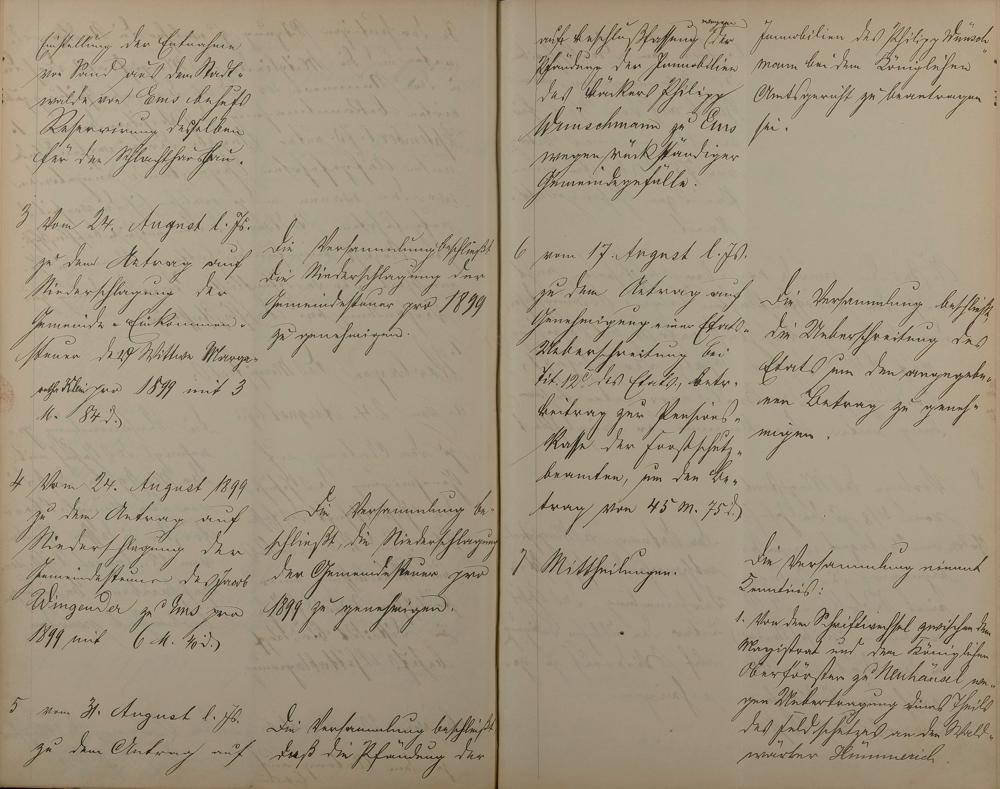 Einstellung der Entnahme
von Sand aus dem Stadt-
walde von Ems behufs
Reservirung desselben
für den Schlachthausbau.
3 Vom 24. August l. Js.
zu dem Antrag auf
Niederschlagung der
Gemeinde-Einkommen-
steuer der Wittwe Marga-
rethe pro 1899 mit 3
M. 84 d.)
Die Versammlung beschließt
die Niederschlagung der
Gemeindesteuer pro 1899
zu genehmigen.
4 Vom 24. August 1899
zu dem Antrag auf
Niederschlagung der
Gemeindesteuer des Jacob
Wingender zu Ems pro
1899 mit 6 M. 40 d.)
Die Versammlung be-
schließt, die Niederschlagung
der Gemeindesteuer pro
1899 zu genehmigen.
5 vom 31. August l. Js.
zu dem Antrag auf
Die Versammlung beschließt
daß die Pfändung der
auf Beschlußfassung wegen der
Pfändung der Immobilien
des Bäckers Philipp
Wünschmann zu Ems
wegen rückständiger
Gemeindegefälle.
Immobilien des Philipp Wünsch-
mann bei dem Königlichen
Amtsgericht zu beantragen
sei.
6 vom 17. August l. Js.
zu dem Antrag auf
Genehmigung einer Etats-
Ueberschreitung bei
Tit. 12 des Etats, betr.
Beitrag zur Pensions-
Kasse der Forstschutz-
beamten, um den Be-
trag von 45 M. 75 d.)
Die Versammlung beschließt
die Ueberschreitung des
Etats um den angegebe-
nen Betrag zu geneh-
migen.
7 Mittheilungen.
Die Versammlung nimmt
Kenntnis:
1. Von dem Schriftwechsel zwischen dem
Magistrat und dem Königlichen
Oberförster zu Neuhäusel we-
gen Uebertragung eines Theils
des Feldschutzes an den Wald-
wärter Hümmerich.